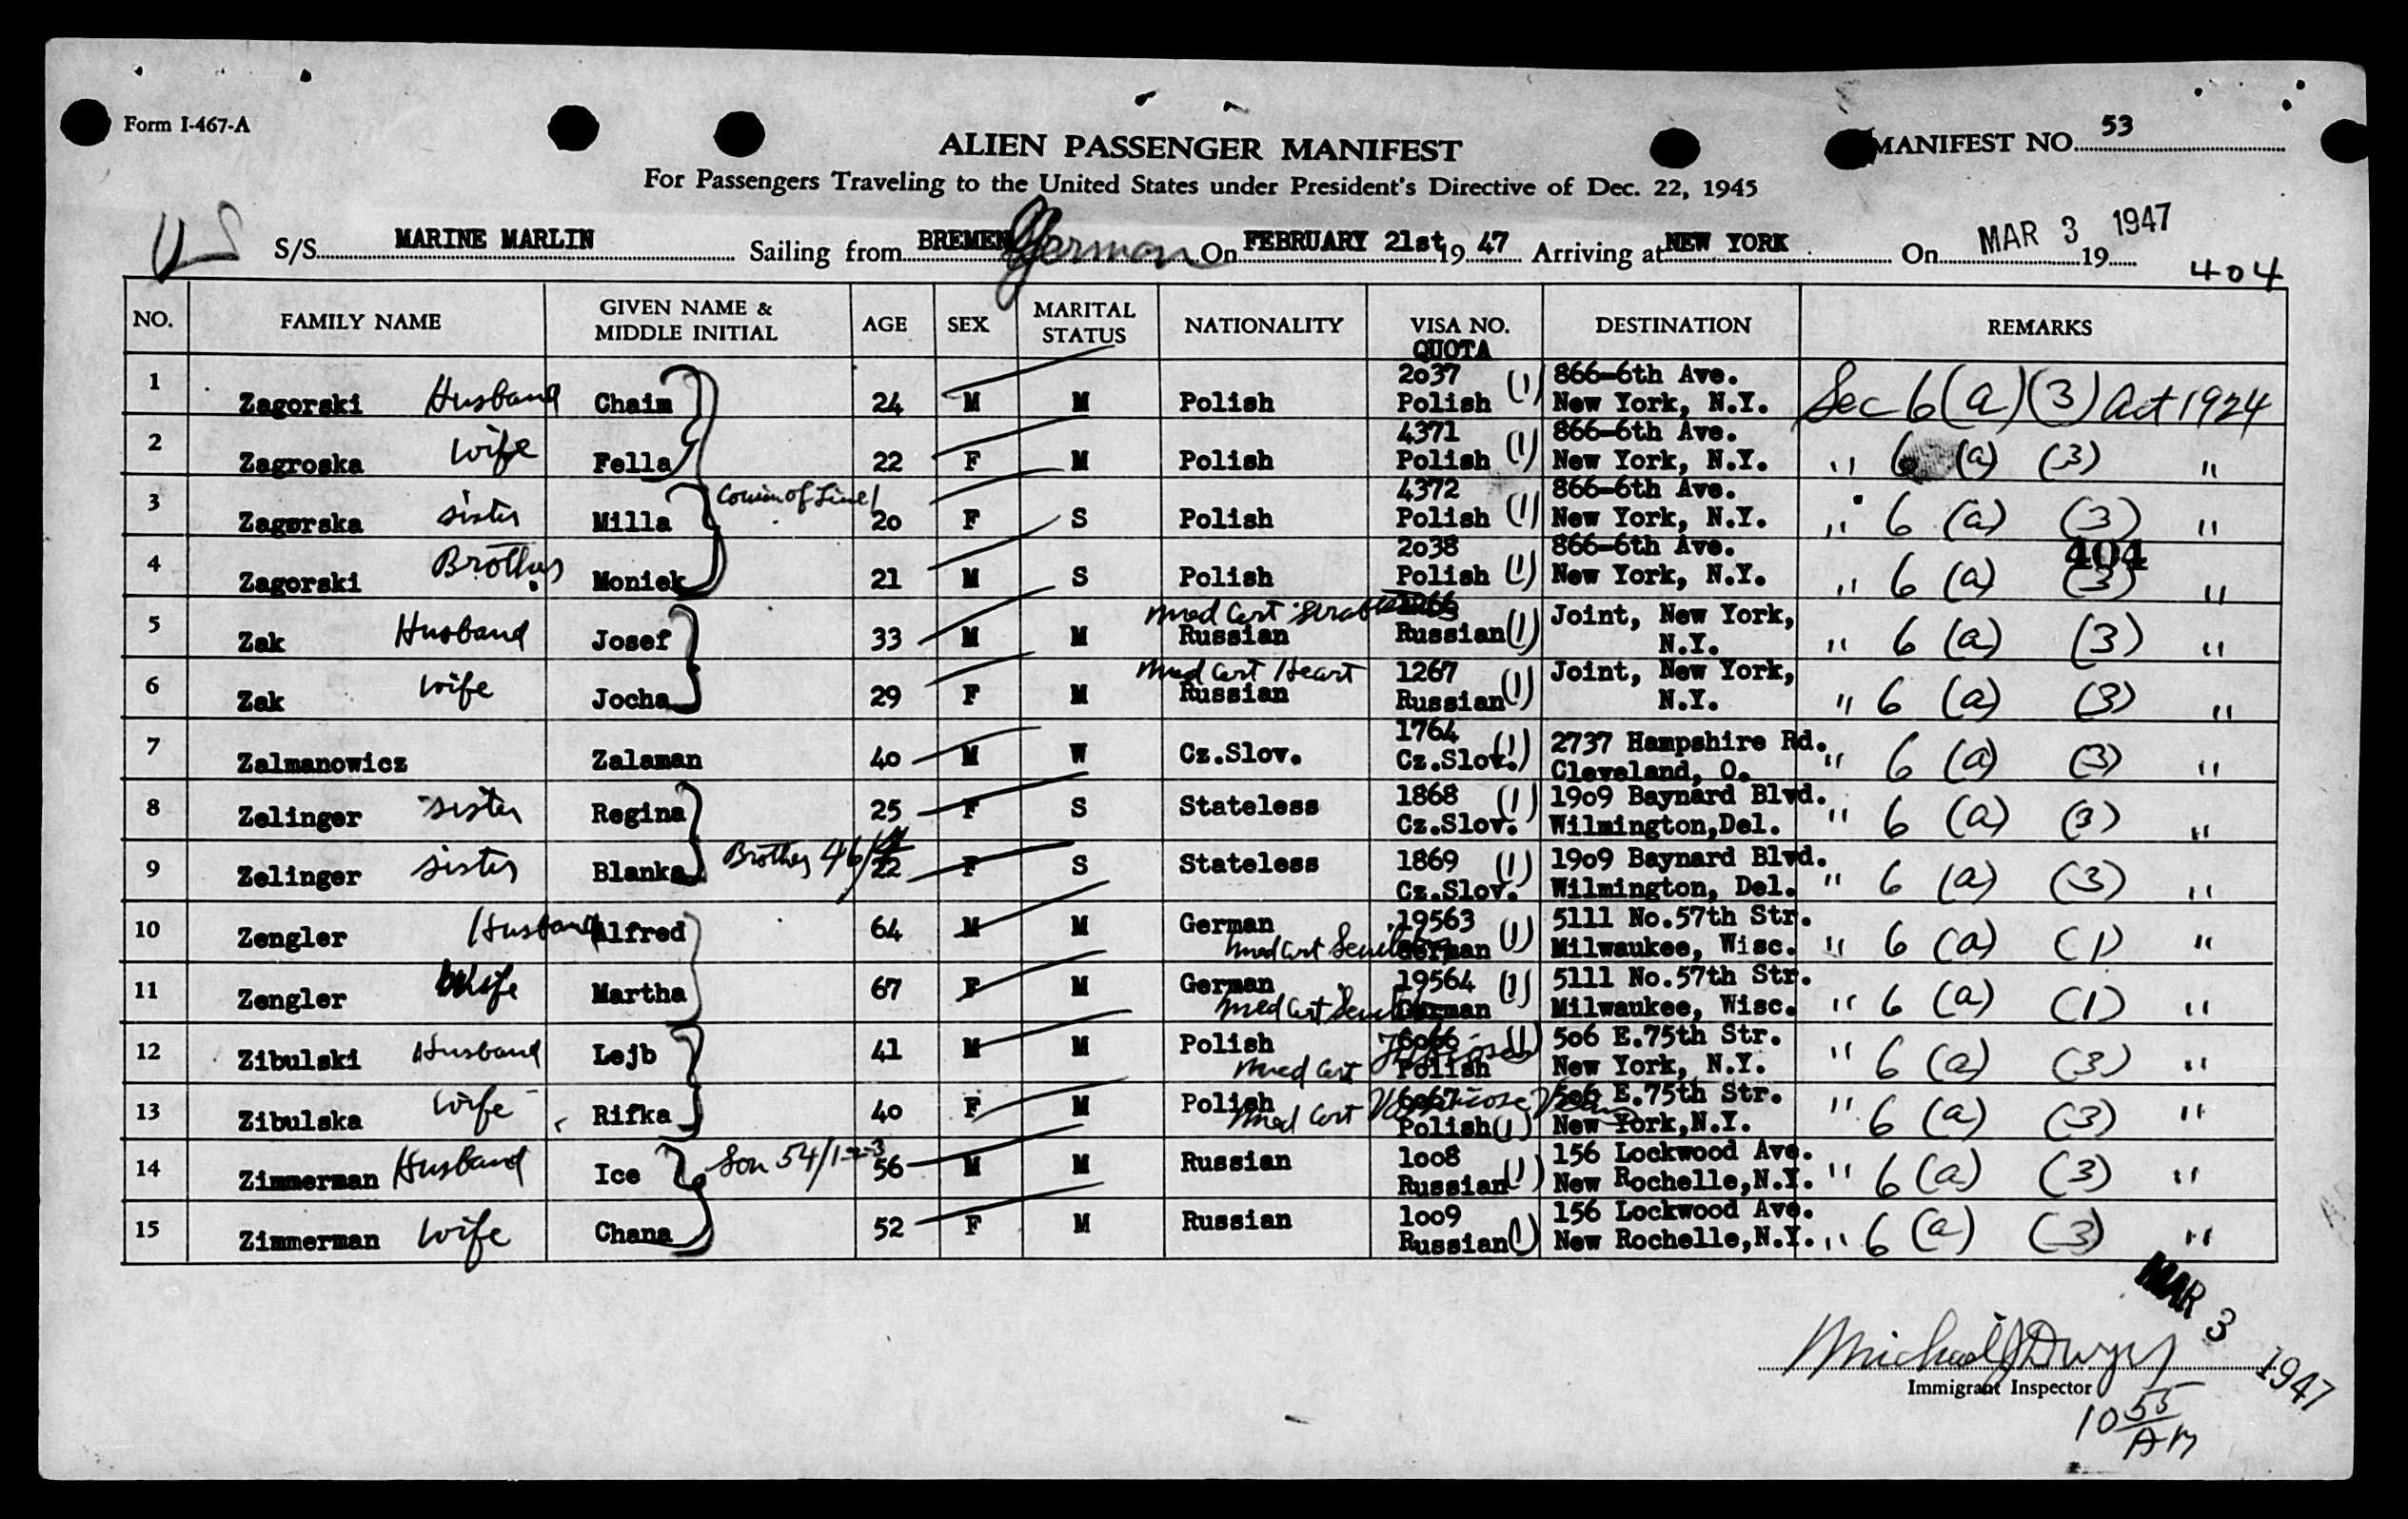 Form I-467-A
MANIFEST NO. 53
ALIEN PASSENGER MANIFEST
For Passengers Traveling to the United States under President's Directive of Dec. 22, 1945
S/S MARINE MARLIN Sailing from BREMEN German On FEBRUARY 21st 19 47 Arriving at NEW YORK On MAR 3 1947 19
404
NO. FAMILY NAME GIVEN NAME & MIDDLE INITIAL AGE SEX MARITAL STATUS NATIONALITY VISA NO. QUOTA DESTINATION REMARKS
1 Zagorski Husband Chaim 24 M M Polish 2037 Polish (1) 866-6th Ave. New York, N.Y. Sec 6 (a) (3) Act 1924
2 Zagroska wife Fella 22 F M Polish 4371 Polish (1) 866-6th Ave. New York, N.Y. " 6 (a) (3) "
3 Zagorska sister Milla 20 F S Polish 4372 Polish (1) 866-6th Ave. New York, N.Y. " 6 (a) (3) "
4 Zagorski Brother Moniek 21 M S Polish 2038 Polish (1) 866-6th Ave. New York, N.Y. " 6 (a) (3) " 404
5 Zak Husband Josef 33 M M Med Cert Russian Russian (1) Joint, New York, N.Y. " 6 (a) (3) "
6 Zak wife Jocha 29 F M Med Cert Heart Russian 1267 Russian (1) Joint, New York, N.Y. " 6 (a) (3) "
7 Zalmanowicz Zalaman 40 M W Cz.Slov. 1764 Cz.Slov. (1) 2737 Hampshire Rd. Cleveland, O. " 6 (a) (3) "
8 Zelinger sister Regina 25 F S Stateless 1868 Cz.Slov. (1) 1909 Baynard Blvd. Wilmington,Del. " 6 (a) (3) "
9 Zelinger sister Blanka Brother 46/ 22 F S Stateless 1869 Cz.Slov. (1) 1909 Baynard Blvd. Wilmington, Del. " 6 (a) (3) "
10 Zengler Husband Alfred 64 M M German Med Cert 19563 German (1) 5111 No.57th Str. Milwaukee, Wisc. " 6 (a) (1) "
11 Zengler Wife Martha 67 F M German Med Cert 19564 German (1) 5111 No.57th Str. Milwaukee, Wisc. " 6 (a) (1) "
12 Zibulski Husband Lejb 41 M M Polish Med Cert 6066 Polish (1) 506 E.75th Str. New York, N.Y. " 6 (a) (3) "
13 Zibulska wife Rifka 40 F M Polish Med Cert Varicose Veins 6067 Polish (1) 506 E.75th Str. New York,N.Y. " 6 (a) (3) "
14 Zimmerman Husband Ice Son 54/1-2-3 56 M M Russian 1008 Russian (1) 156 Lockwood Ave. New Rochelle,N.Y. " 6 (a) (3) "
15 Zimmerman wife Chana 52 F M Russian 1009 Russian (1) 156 Lockwood Ave. New Rochelle,N.Y. " 6 (a) (3) "
MAR 3 1947
Michael J Dwyer
Immigrant Inspector
10 55 AM